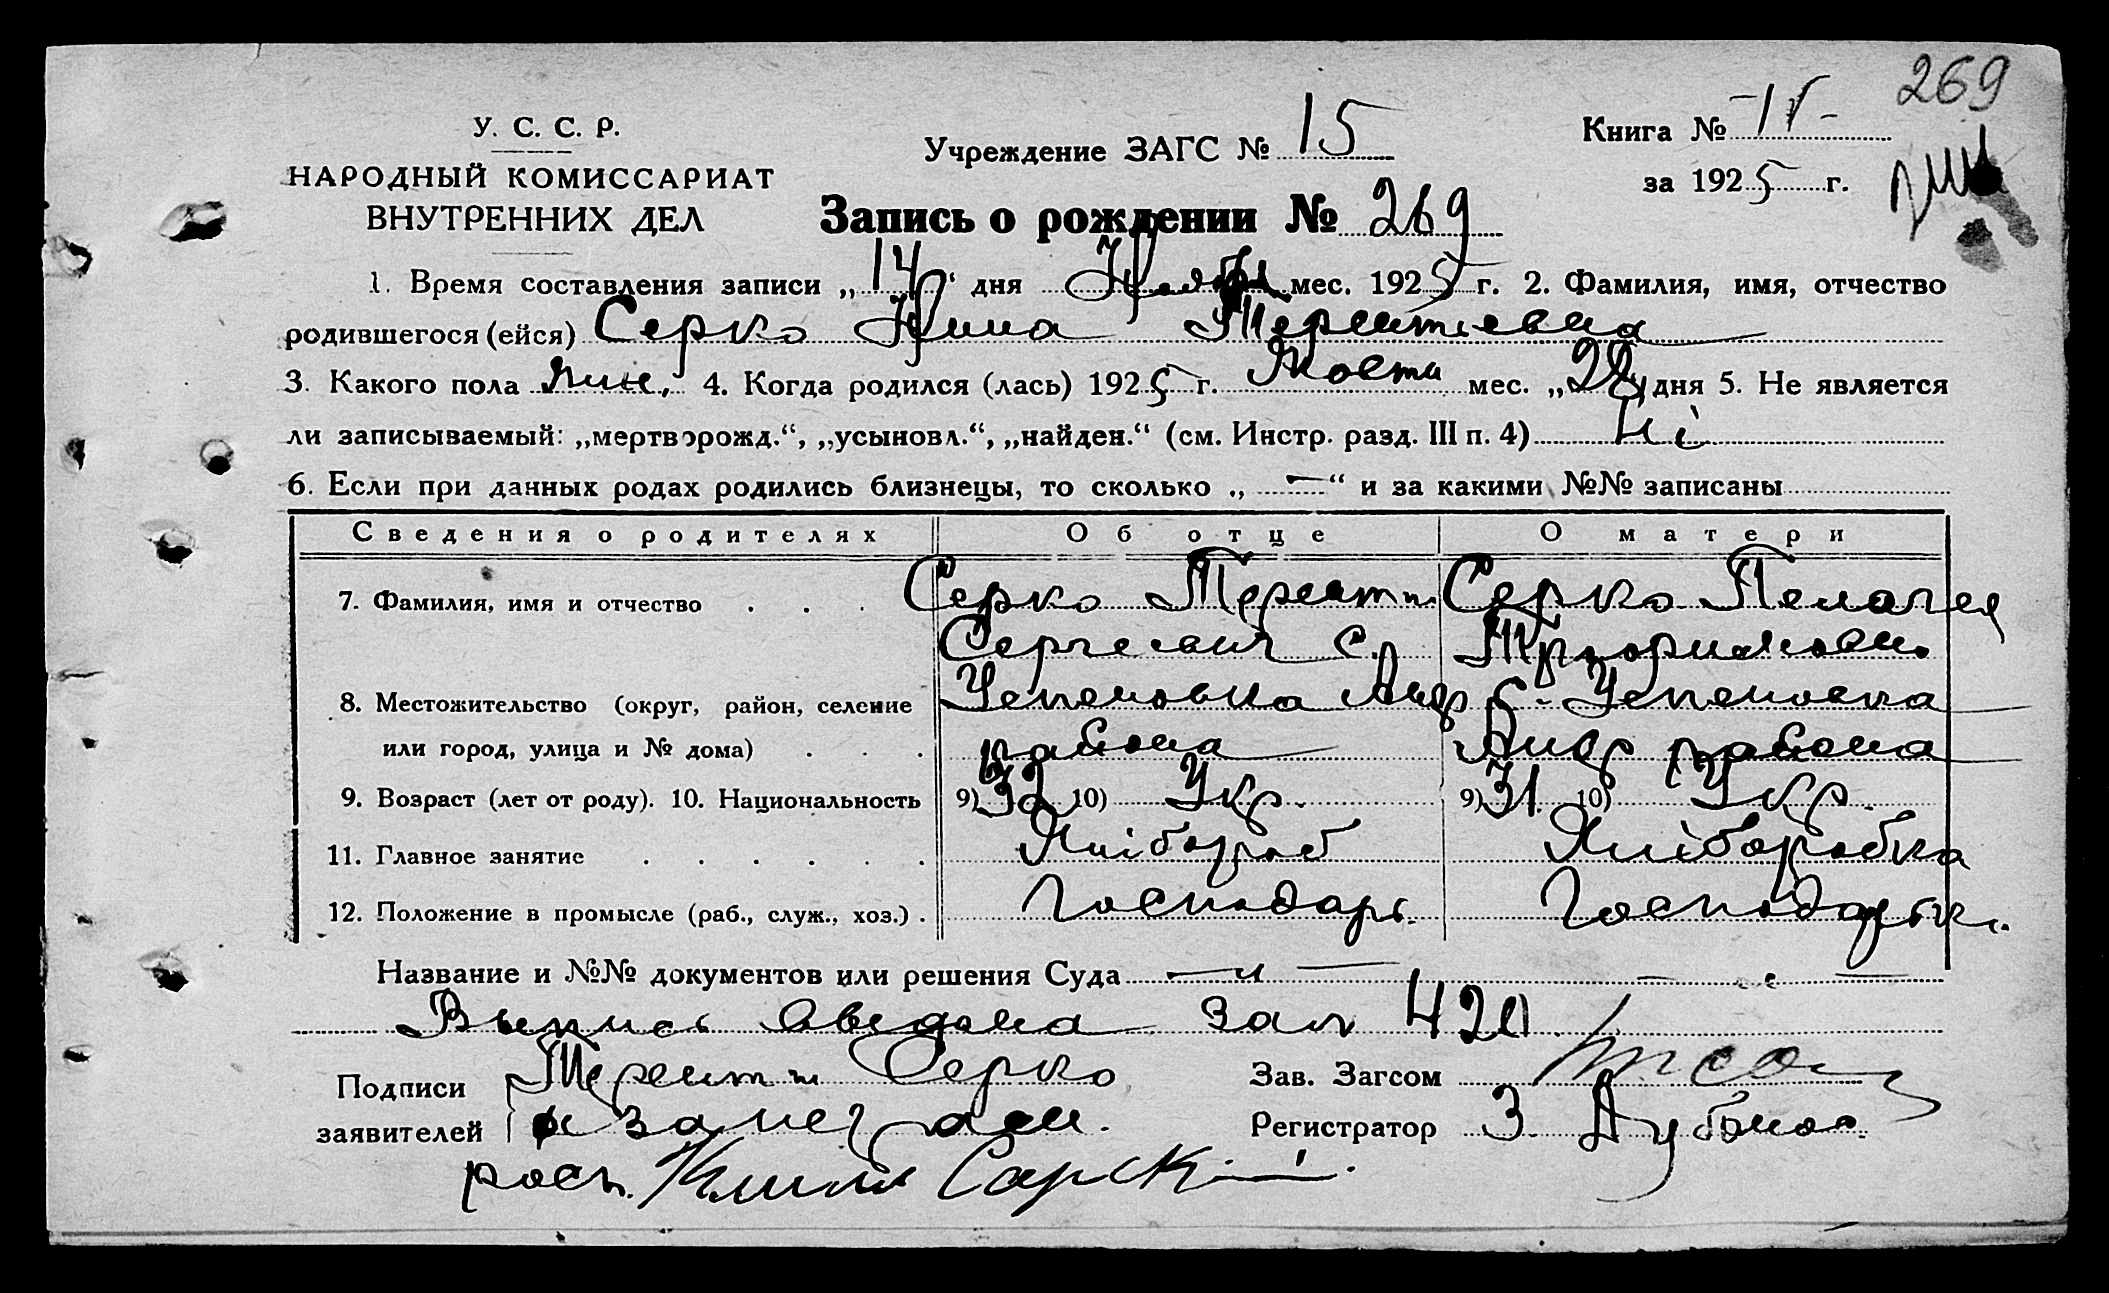 269
У. С. С. Р.
НАРОДНЫЙ КОМИССАРИАТ
ВНУТРЕННИХ ДЕЛ
Учреждение ЗАГС № 15
Книга №
за 1925 г.
Запись о рождении № 269
1. Время составления записи „14“ дня мес. 1925 г. 2. Фамилия, имя, отчество
родившегося (ейся) Серко Нина Терентиевна
3. Какого пола жін. 4. Когда родился (лась) 1925 г. Жовтн мес. „28“ дня 5. Не является
ли записываемый: „мертворожд.“, „усыновл.“, „найден.“ (см. Инстр. разд. III п. 4) Ні
6. Если при данных родах родились близнецы, то сколько „—“ и за какими №№ записаны
Сведения о родителях Об отце О матери
7. Фамилия, имя и отчество . . . Серко Терентий Серко Пелагея
Сергеевич с.
8. Местожительство (округ, район, селение Успеновка Андр с. Успеновка
или город, улица и № дома) . . . района Андр района
9. Возраст (лет от роду). 10. Национальность 9) 32 10) Укр. 9) 31. 10) Укр.
11. Главное занятие . . . . . . Хлібороб Хліборобка
12. Положение в промысле (раб., служ., хоз.) . Господарь. Господарьк.
Название и №№ документов или решения Суда
Выпись
Подписи Терентий Серко
заявителей
Зав. Загсом
Регистратор З.